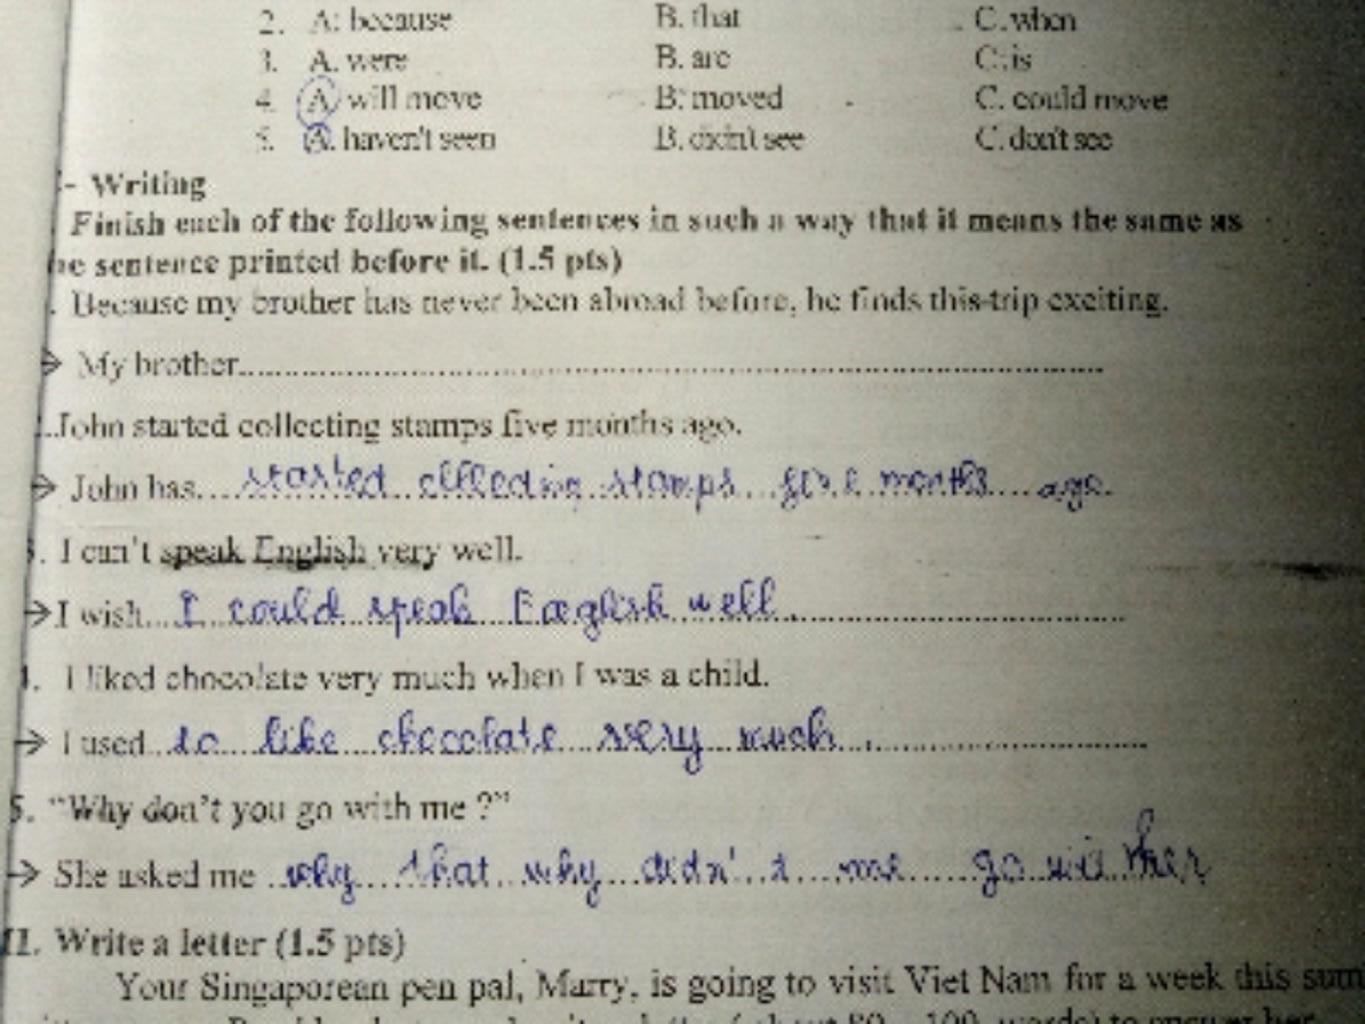 2. A. because B. that C. when
3. A. were B. are C. is
4. A. will move B. moved C. could move
5. A. haven't seen B. didn't see C. don't see
- Writing
Finish each of the following sentences in such a way that it means the same as
he sentence printed before it. (1.5 pts)
. Because my brother has never been abroad before, he finds this trip exciting.
→ My brother..........
. John started collecting stamps five months ago.
→ John has started collecting stamps five months ago.
3. I can't speak English very well.
→ I wish I could speak English well
4. I liked chocolate very much when I was a child.
→ I used to like chocolate very much.
5. "Why don't you go with me ?"
→ She asked me why that why didn't me go with her
II. Write a letter (1.5 pts)
Your Singaporean pen pal, Marry, is going to visit Viet Nam for a week this sum
letter (about 80 - 100 words) to answer her